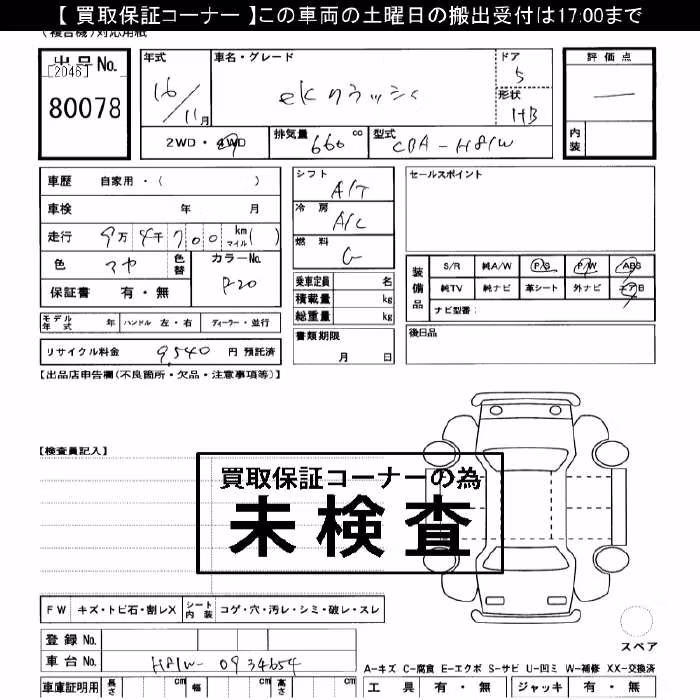 【 買取保証コーナー 】この車両の土曜日の搬出受付は17:00まで
(複合機)対応用紙
出品No.
[2046]
80078
年式
16/11月
車名・グレード
ekクラッシィ
ドア
5
形状
HB
評価点
―
内装
2WD・4WD
排気量 660 cc
型式 CBA-H81W
車歴 自家用・( )
車検 年 月
走行 9万4千700 km マイル( )
色
色替
カラーNo.
P20
保証書 有・無
モデル年式 年 ハンドル 左・右 ディーラー・並行
リサイクル料金 9,540 円 預託済
シフト
A/T
冷房
A/C
燃料
G
乗車定員 名
積載量 kg
総重量 kg
書類期限
月 日
セールスポイント
装備品
S/R 純A/W P/S P/W ABS
純TV 純ナビ 革シート 外ナビ エアB
ナビ型番:
後日品
【出品店申告欄(不良箇所・欠品・注意事項等)】
【検査員記入】
買取保証コーナーの為
未検査
FW キズ・トビ石・割レX シート内装 コゲ・穴・汚レ・シミ・破レ・スレ
登録No.
車台No. H81W-0934654
スペア
A-キズ C-腐食 E-エクボ S-サビ U-凹ミ W-補修 XX-交換済
車庫証明用 長さ cm 幅 cm 高さ cm
工具 有・無 ジャッキ 有・無